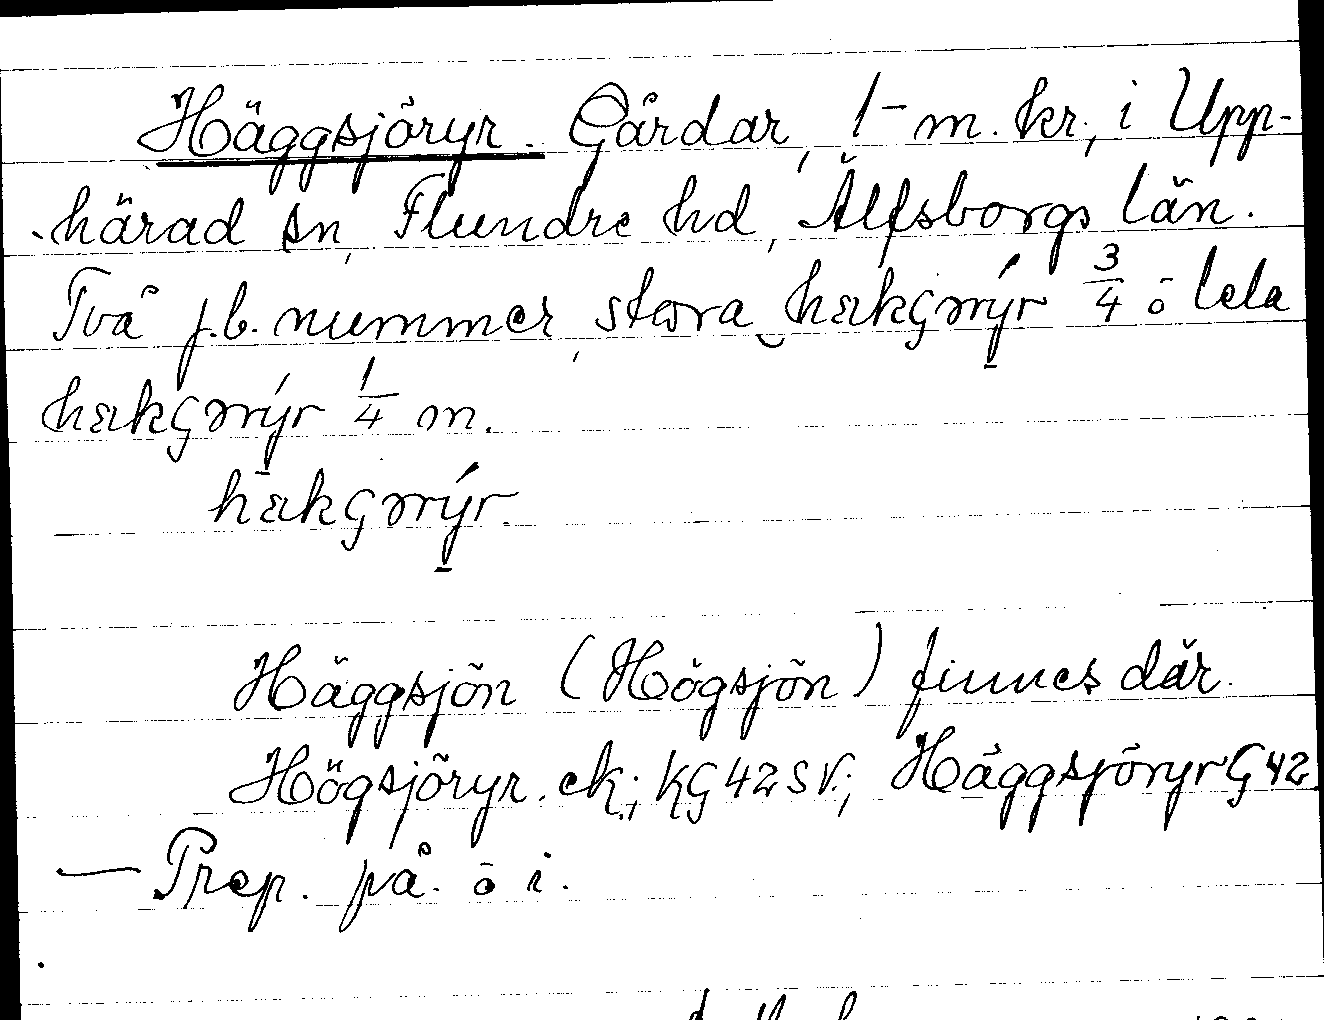 Häggsjöryr. Gårdar, 1 m. kr., i Upp-
härad sn, Flundre hd, Älfsborgs län.
Två j.b. nummer, stora hækGrrýr 3/4 ō lela
hækGrrýr 1/4 m.
hækGrrýr.
Häggsjön (Högsjön) finnes där.
Högsjöryr. ek; KG42SV.; HäggsjöryrG42
— Prep. på ō i.